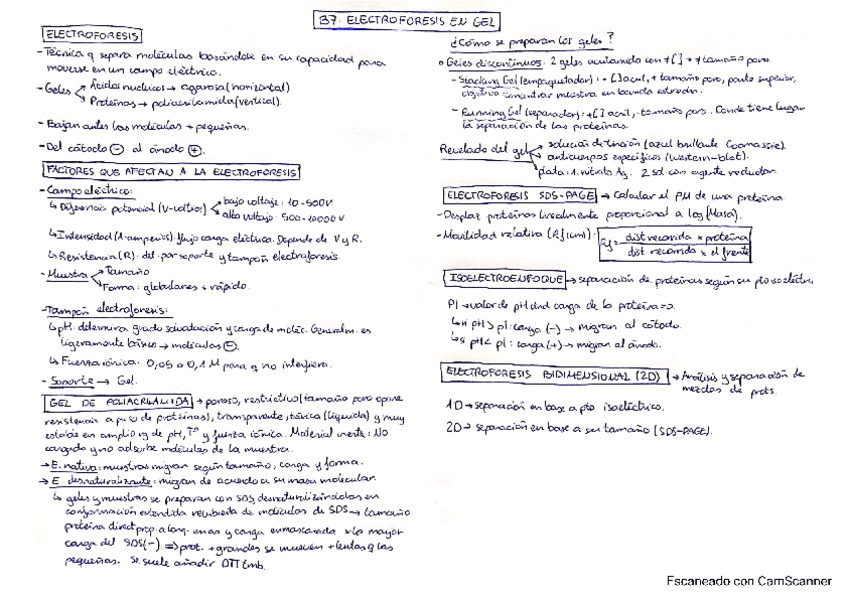 B7: ELECTROFORESIS EN GEL
ELECTROFORESIS
-Técnica q separa moléculas basándose en su capacidad para
moverse en un campo eléctrico.
-Geles Ácidos nucleicos → agarosa (horizontal)
Proteínas → poliacrilamida (vertical).
-Bajan antes las moléculas + pequeñas.
-Del cátodo (-) al ánodo (+).
FACTORES QUE AFECTAN A LA ELECTROFORESIS
-Campo eléctrico:
↳ Diferencia potencial (V-voltios) bajo voltaje: 10-500V
alto voltaje: 500-10000V
↳ Intensidad (A-amperios) flujo carga eléctrica. Depende de V y R.
↳ Resistencia (R): det. por soporte y tampón electroforesis.
-Muestra Tamaño
Forma: globulares + rápido.
-Tampón electroforesis:
↳ pH: determina grado disociación y carga de moléc. Generalm. es
ligeramente básico → moléculas (-).
↳ Fuerza iónica: 0,05 o 0,1 M para q no interfiera.
-Soporte → Gel.
GEL DE POLIACRILAMIDA → poroso, restrictivo (tamaño poro opone
resistencia a paso de proteínas), transparente, tóxica (líquida) y muy
estable en amplio rg de pH, Tª y fuerza iónica. Material inerte: No
cargado y no adsorbe moléculas de la muestra.
→ E. nativa: muestras migran según tamaño, carga y forma.
→ E. desnaturalizante: migran de acuerdo a su masa molecular.
↳ geles y muestras se preparan con SDS, desnaturalizándolas en
conformación extendida recubierta de moléculas de SDS → tamaño
proteína direct. prop. a long. y carga enmascarada x la mayor
carga del SDS(-) ⇒ prot. + grandes se mueven + lentas q las
pequeñas. Se suele añadir DTT tmb.
¿Cómo se preparan los geles?
Geles discontinuos: 2 geles acrilamida con ≠ [ ] + ≠ tamaño poro.
-Stacking Gel (empaquetador): - [ ] acril, + tamaño poro, parte superior,
objetivo concentrar muestra en banda estrecha.
-Running Gel (separador): + [ ] acril, - tamaño poro. Donde tiene lugar
la separación de las proteínas.
Revelado del gel solución de tinción (azul brillante Coomassie).
anticuerpos específicos (western-blot).
plata: 1. nitrato Ag. 2 sol con agente reductor.
ELECTROFORESIS SDS-PAGE → Calcular el PM de una proteína
-Desplaz proteínas linealmente proporcional a log(Masa).
-Movilidad relativa (Rf): Rf = dist recorrida x proteína
dist recorrida x el frente
ISOELECTROENFOQUE → separación de proteínas según su pto isoeléctri.
PI → valor de pH dnd carga de la proteína = 0.
↳ si pH > pI: carga (-) → migran al cátodo.
↳ si pH < pI: carga (+) → migran al ánodo.
ELECTROFORESIS BIDIMENSIONAL (2D) → Análisis y separación de
mezclas de prots.
1D → separación en base a pto isoeléctrico.
2D → separación en base a su tamaño (SDS-PAGE).
Escaneado con CamScanner